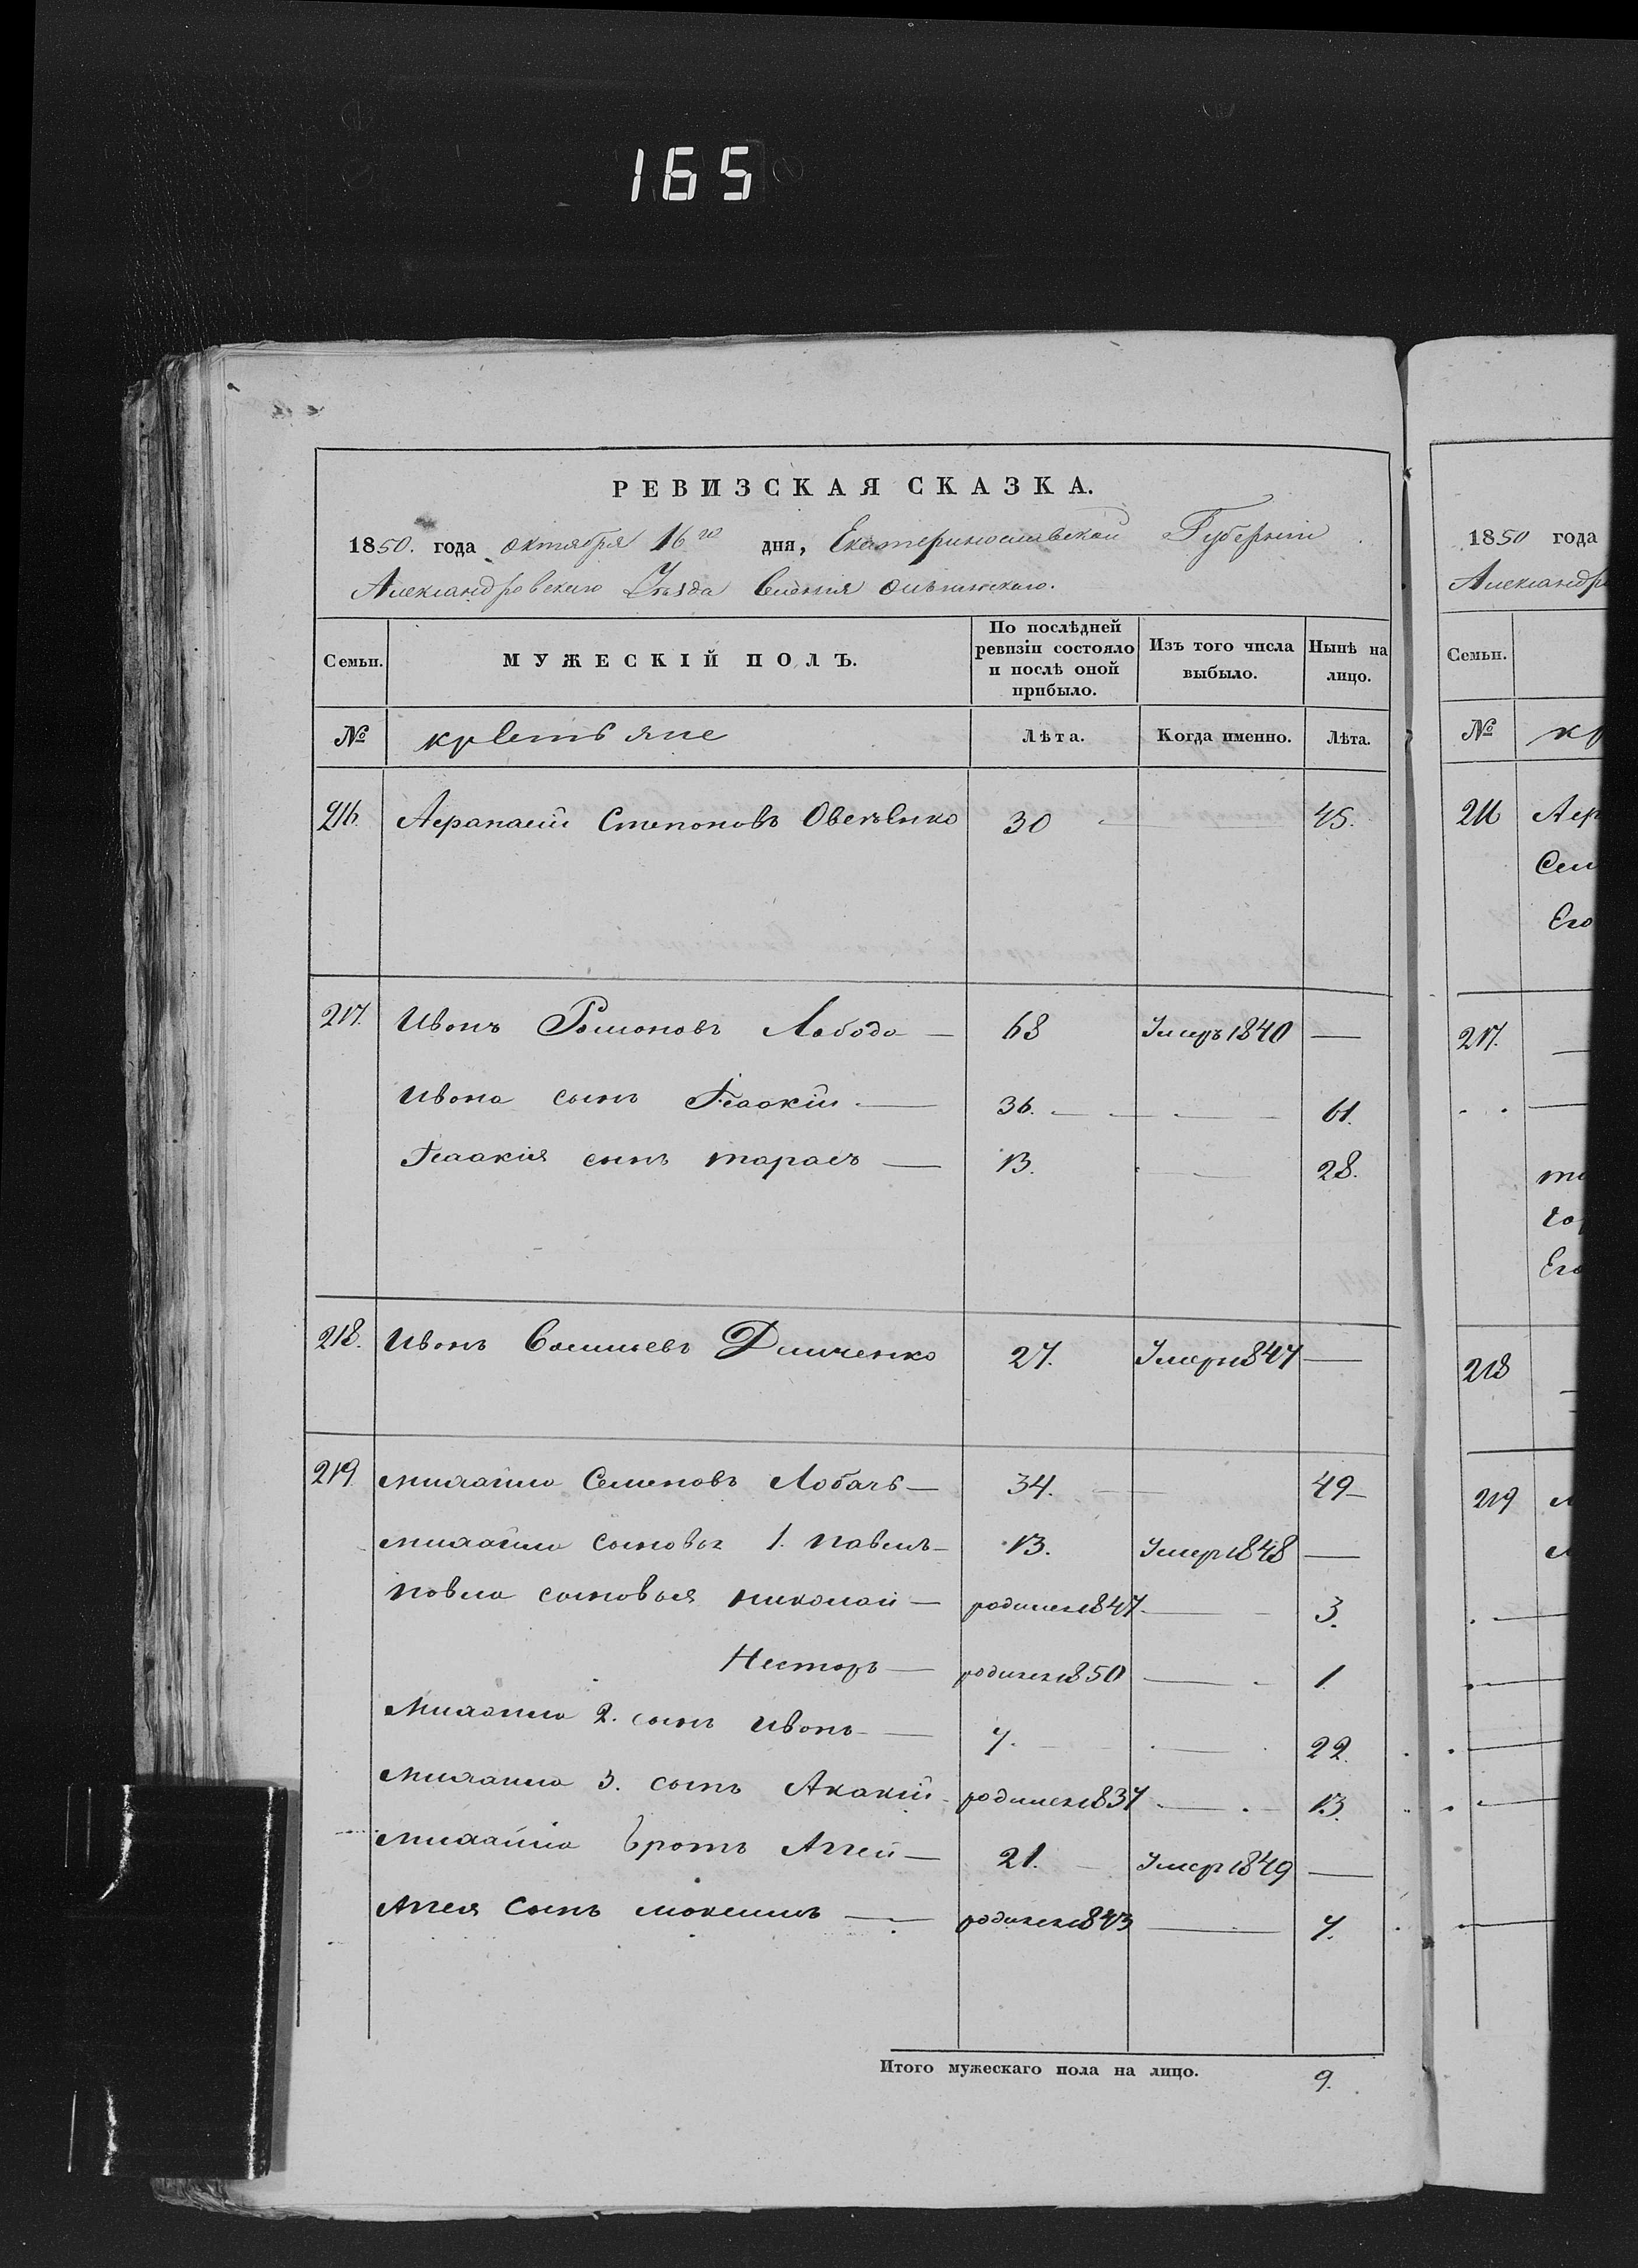 165
РЕВИЗСКАЯ СКАЗКА.
1850. года октября 16го дня, Екатеринославской Губерніи
Александровскаго Уѣзда Селенія
Семьи. МУЖЕСКІЙ ПОЛЪ. По послѣдней ревизіи состояло и послѣ оной прибыло. Изъ того числа выбыло. Нынѣ на лицо.
№ крестьяне Лѣта. Когда именно. Лѣта.
216. Афанасій Степановъ 30 — 45.
217. Иванъ Романовъ Лобода — 68 Умеръ 1840 —
Ивана сынъ Ісаакій — 36. — 61.
Ісаакія сынъ тарасъ — 13. — 28.
218. Иванъ Демченко 27. Умеръ 1847 —
219. михайло Семеновъ Лобачь — 34. — 49 —
михайла сыновья 1. павелъ — 13. Умер 1848 —
павла сыновья николай — родился 1847 — 3.
Несторъ — родился 1850 — 1
Михайла 2. сынъ иванъ — 7. — 22.
михайла 3. сынъ Акакій — родился 1837 — 13.
михайла братъ Аггей — 21. Умер 1849 —
Аггея сынъ максимъ — родился 1843 — 7.
Итого мужескаго пола на лицо. 9.
1850 года
Александро
Семьи.
№ кр
216 Аф
Его
217.
Его
218
219